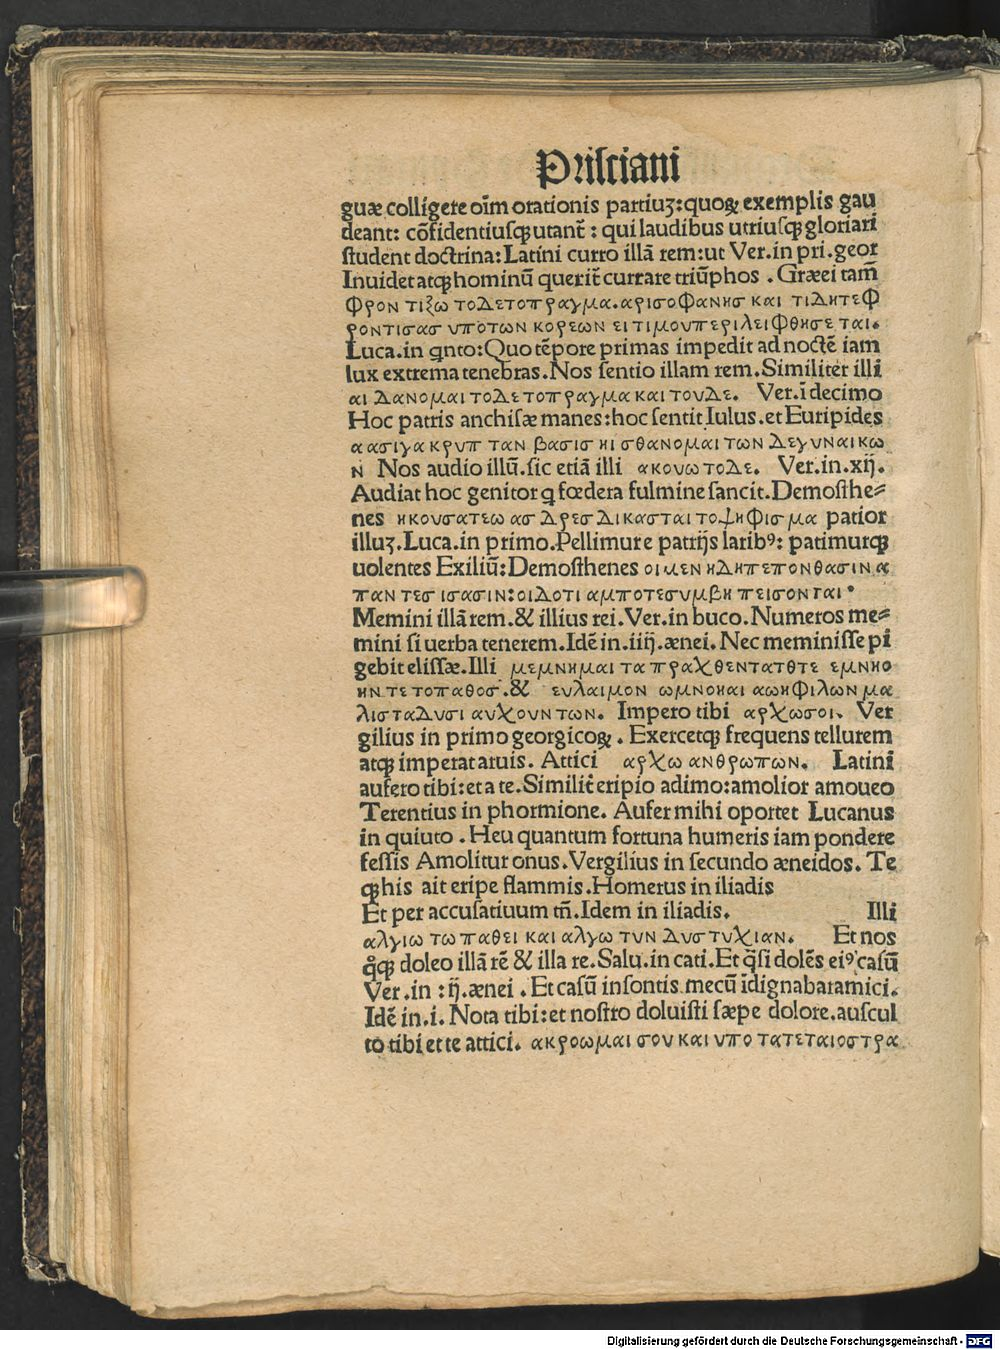 Priſciani
guæ colligere oīm orationis partiuʒ: quoꝝ exemplis gau
deant: cōfidentiuſqꝫ utant̃ : qui laudibus utriuſqꝫ gloriari
ſtudent doctrina: Latini curro illã rem: ut Ver. in pri. geor
Inuidet atqꝫ hominũ querit̃ currare triũphos . Græei tam̃
φρον τιξω τοδετοπραγμα. αρισοφανησ και τιδητεφ
ροντισασ υποτων κορεων ει τιμουπεριλειφθησε ται.
Luca. in ꝗnto: Quo tẽpore primas impedit ad noctẽ iam
lux extrema tenebras. Nos ſentio illam rem. Similiter illi
αι δανομαι τοδετοπραγμα και τουδε. Ver. ī decimo
Hoc patris anchiſæ manes: hoc ſentit Iulus. et Euripides
αασιγα κρυπ ταν βασισ ηι σθανομαι των δεγυναικω
ν Nos audio illũ. ſic etiã illi ακουω τοδε. Ver. in. xij.
Audiat hoc genitor ꝗ fœdera fulmine ſancit. Demoſthe=
nes ηκουσατεω ασ δρεσ δικασται τοψηφισμα patior
illuʒ. Luca. in primo. Pellimur e patrijs laribꝰ: patimurqꝫ
uolentes Exiliũ: Demoſthenes οιμεν ηδηπεπονθασιν α
παν τεσ ισασιν: οιδοτι αμποτεσυμβη πεισονται·
Memini illã rem. & illius rei. Ver. in buco. Numeros me=
mini ſi uerba tenerem. Idẽ in. iiij. ænei. Nec meminiſſe pi
gebit eliſſæ. Illi μεμνημαι τα πραχθεντατθτε εμνηο
ην τε τοπαθοσ. & ευλαιμον ωμνοηαι αωηφιλων μα
λισταδυσι αυχουντων. Impero tibi αρχωσοι. Ver
gilius in primo georgicoꝝ . Exercetqꝫ frequens tellurem
atqꝫ imperat aruis. Attici αρχω ανθρωπων. Latini
aufero tibi: et a te. Similit̃ eripio adimo: amolior amoueo
Terentius in phormione. Aufer mihi oportet Lucanus
in quiuto . Heu quantum fortuna humeris iam pondere
feſſis Amolitur onus. Vergilius in ſecundo æneidos. Te
qꝫ his ait eripe flammis. Homerus in iliadis
Et per accuſatiuum tñ. Idem in iliadis. Illi
αλγιω τω παθει και αλγω τυν δυστυχιαν. Et nos
q̊qꝫ doleo illã rẽ & illa re. Salu. in cati. Et q̃ſi dolẽs eiꝰ caſũ
Ver. in : ij. ænei . Et caſũ inſontis mecũ īdignabar amici.
Idẽ in. i. Nota tibi: et noſtro doluiſti ſæpe dolore. auſcul
to tibi et te attici. ακροωμαι σου και υπο τατεταιοστρα
Digitalisierung gefördert durch die Deutsche Forschungsgemeinschaft - DFG